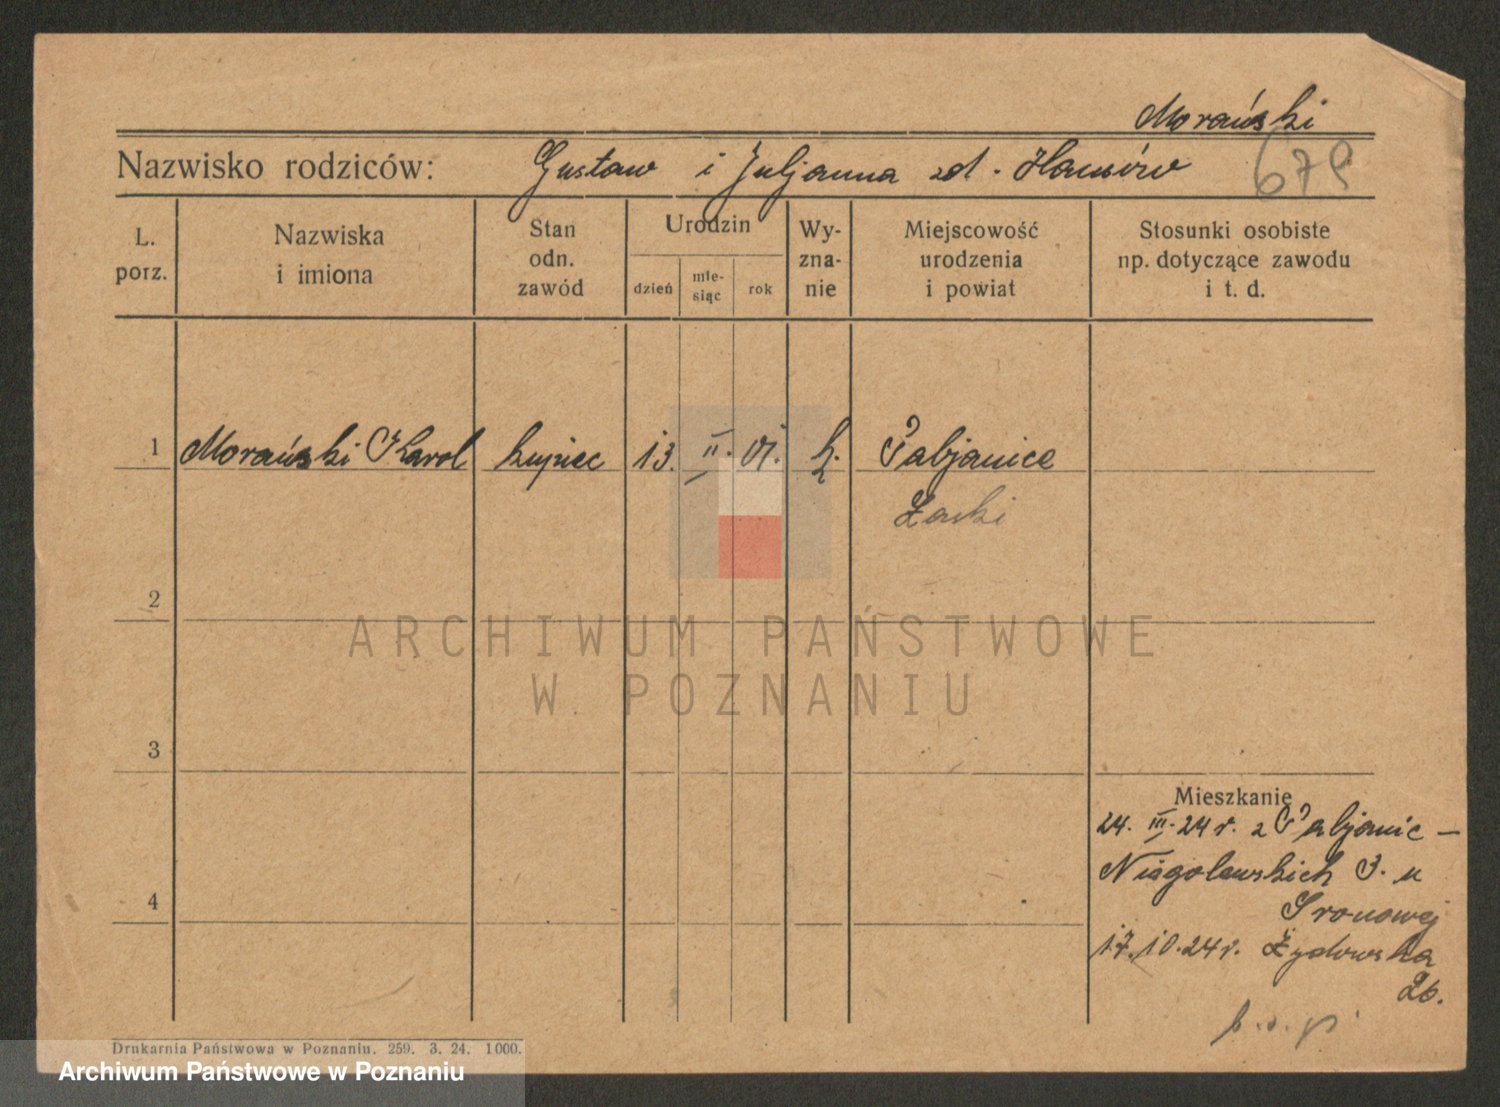 Morański
Nazwisko rodziców: Gustaw i Juljanna zd. Hansów 679
L. porz.
Nazwiska i imiona
Stan odn. zawód
Urodzin
dzień
mie-siąc
rok
Wy-zna-nie
Miejscowość urodzenia i powiat
Stosunki osobiste np. dotyczące zawodu i t. d.
1 Morański Karol kupiec 13. II. 01. k. Pabjanice
Łaski
2
ARCHIWUM PAŃSTWOWE
W POZNANIU
3
Mieszkanie
24. III. 24 r. z Pabjanic –
Niegolewskich 3. u
4
17.10.24 r. Żydowska
26.
Drukarnia Państwowa w Poznaniu. 259. 3. 24. 1000.
Archiwum Państwowe w Poznaniu